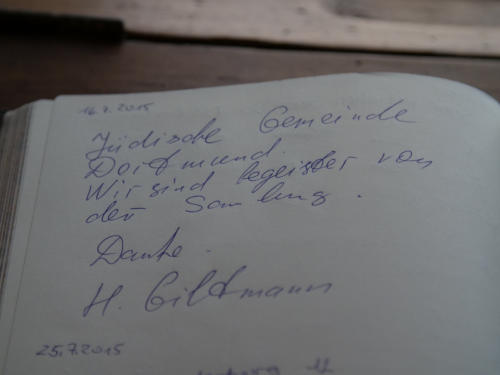 16.7.2015
Jüdische Gemeinde
Dortmund.
Wir sind begeister von
der Samlung.
Danke.
H. Giltmann
25.7.2015